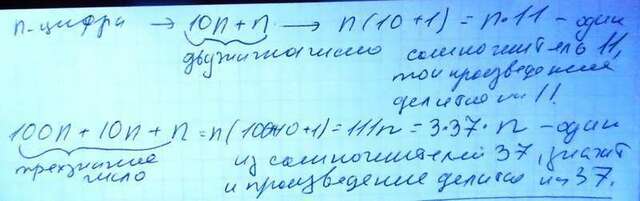 n-цифра → 10n+n → n(10+1)=n·11 - один
двузначное число сомножитель 11,
то и произведение
делится на 11.
100n+10n+n=n(100+10+1)=111n=3·37·n - один
трехзначное из сомножителей 37, значит
число и произведение делится на 37.